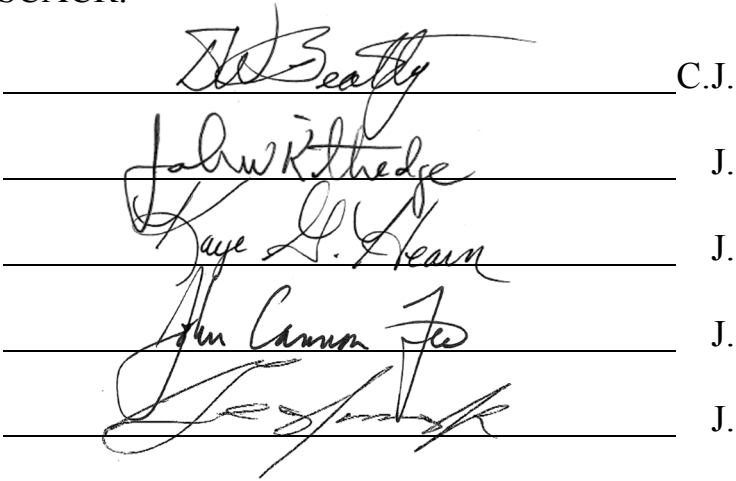 SCACR.
DW Beatty C.J.
John W Kittredge J.
Kaye G. Hearn J.
John Cannon Few J.
J.